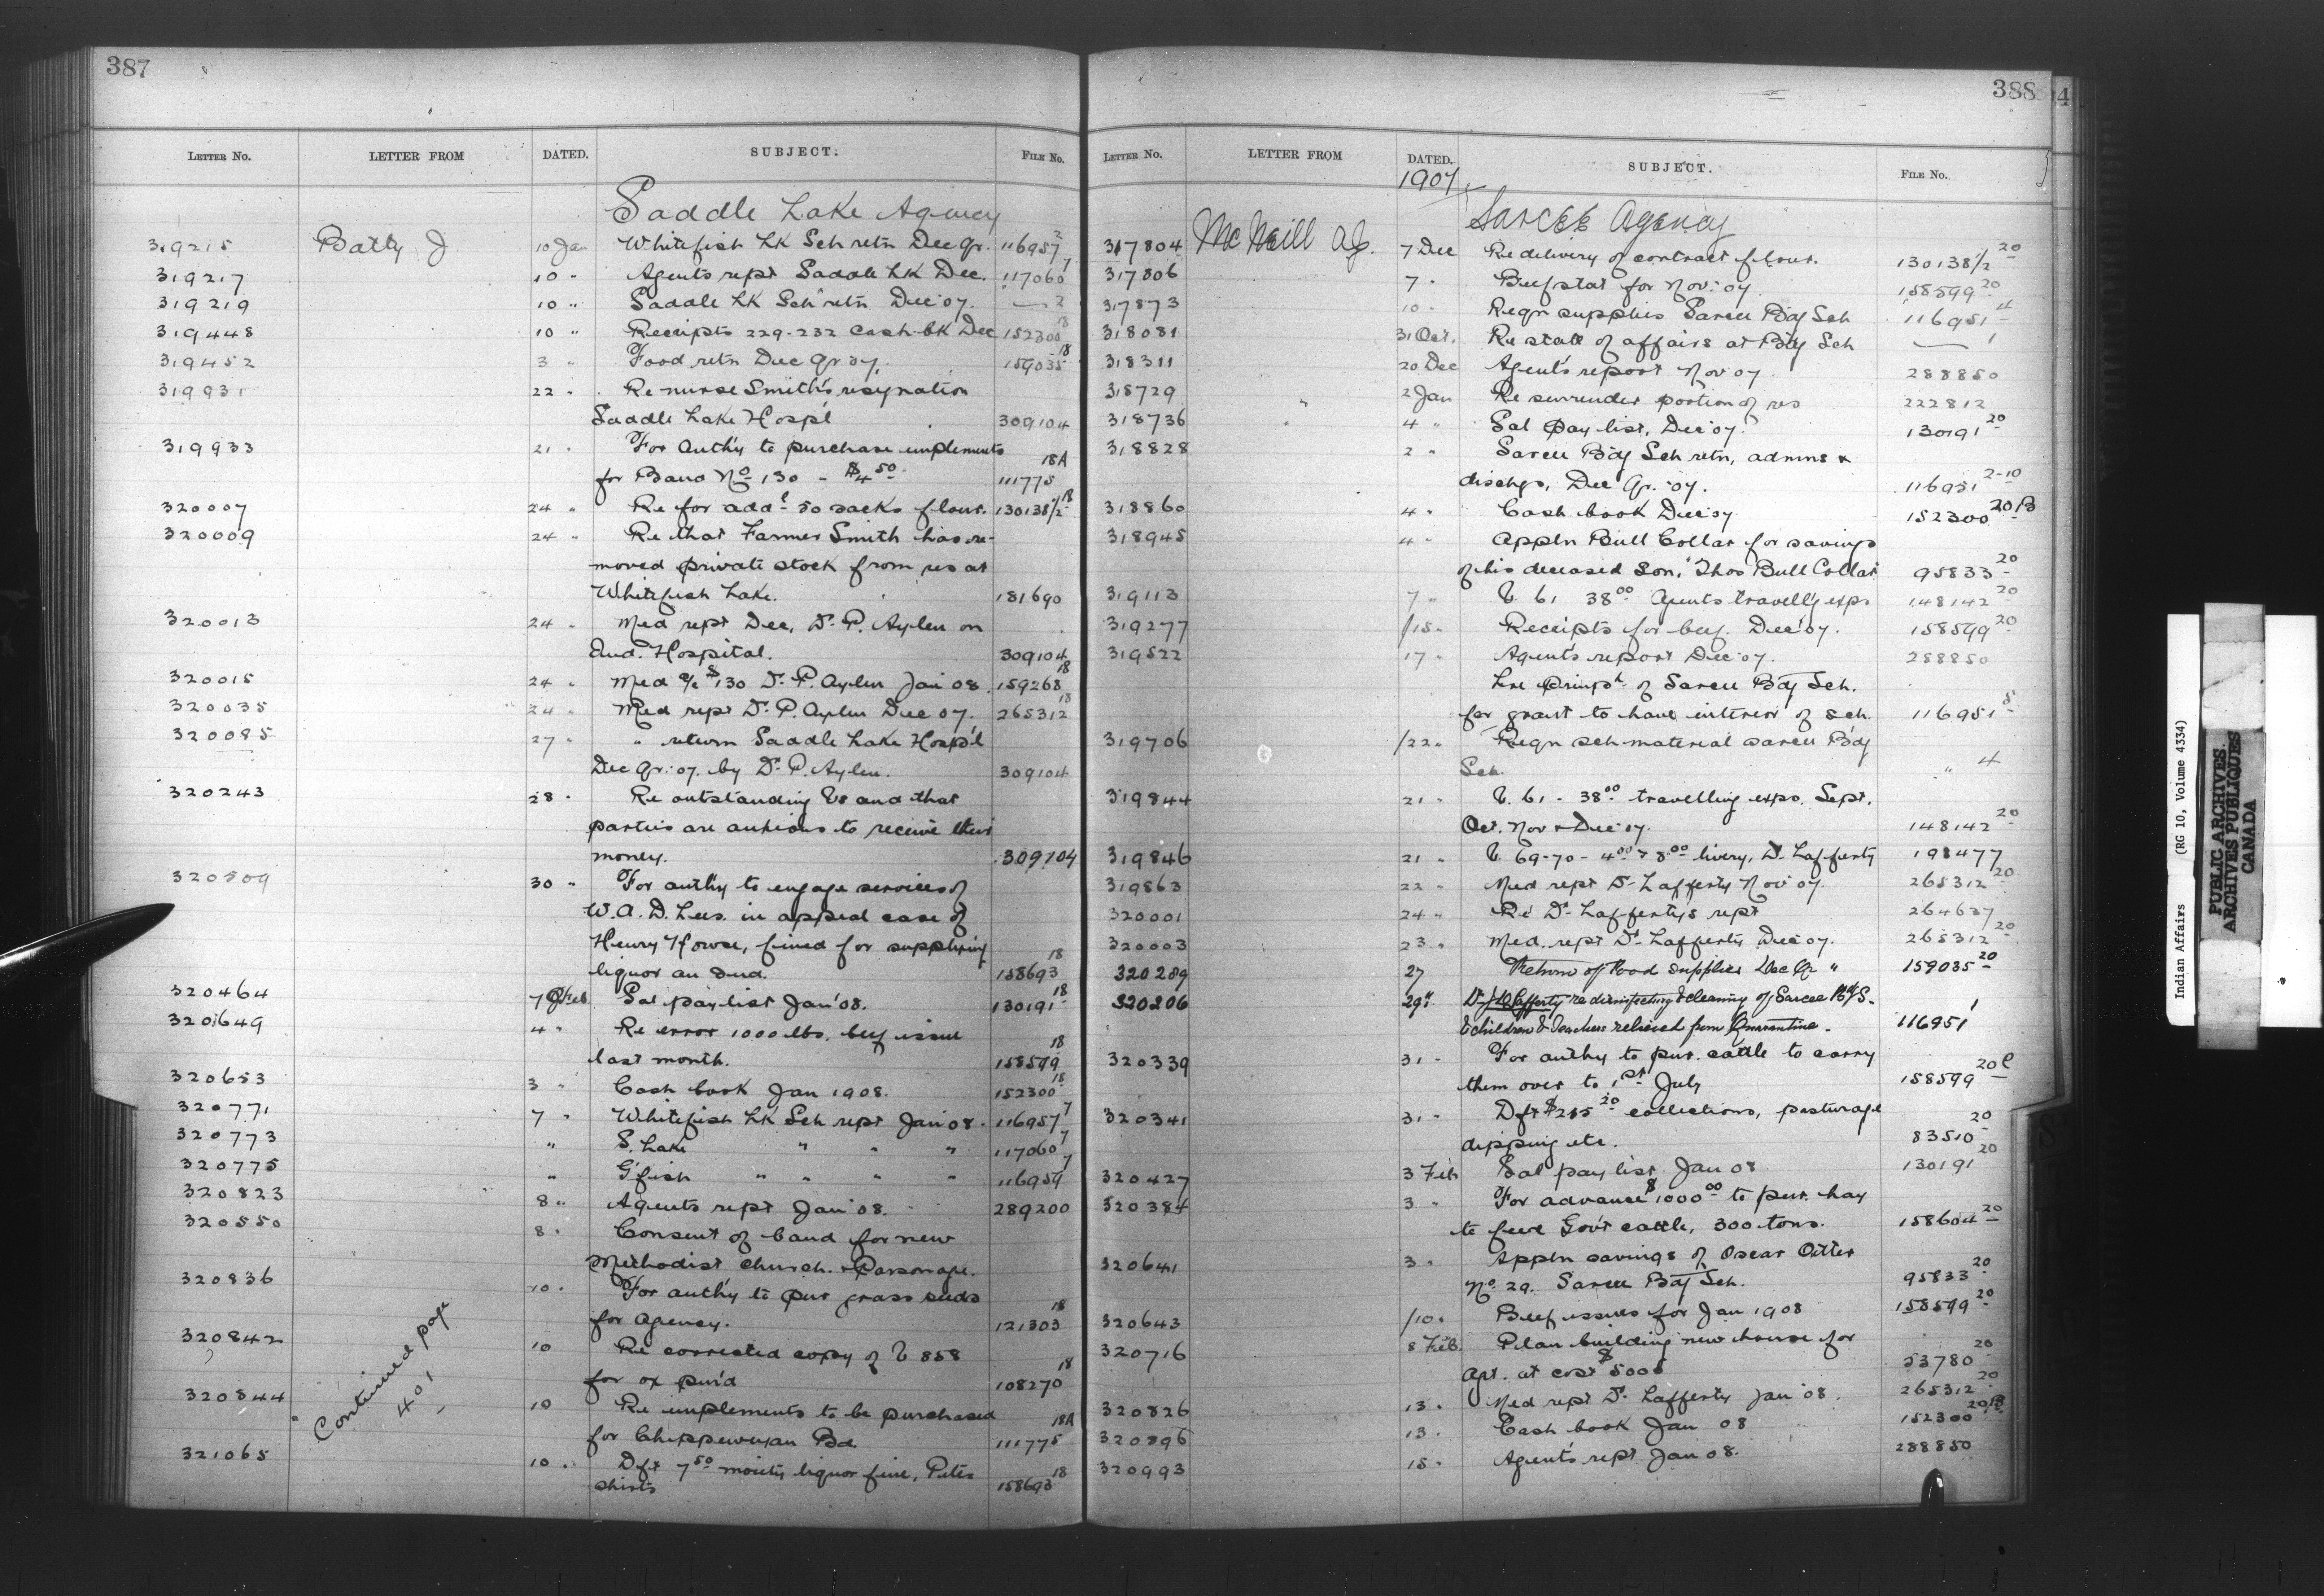 387
LETTER NO. LETTER FROM DATED. SUBJECT. FILE NO.
Saddle Lake Agency
319215 Batty J 10 Jan Whitefish Lk Sch retn Dec Qr. 116957 2
319217 10 " Agents rept Saddle Lk Dec. 117060 7
319219 10 " Saddle Lk Sch retn Dec '07. — 2
319448 10 " Receipts 229-232 Cash bk Dec 152300 18
319452 3 " Food retn Dec Qr 07. 159035 18
319931 22 " Re nurse Smith's resignation
Saddle Lake Hosp'l 309104
319933 21 " For Auth'y to purchase implements
for Band No 130 - $4 50 111775 18A
320007 24 " Re for add'l 50 sacks flour. 130138 1/2 18
320009 24 " Re that Farmer Smith has re-
moved private stock from res at
Whitefish Lake. 181690
320013 24 " Med rept Dec, Dr. P. Aylen on
Ind. Hospital. 309104
320015 24 " Med a/c $130 Dr. P. Aylen Jan 08. 159268 18
320035 24 " Med rept Dr. P. Aylen Dec 07. 265312 18
320085 27 " " return Saddle Lake Hosp'l
Dec Qr. 07. by Dr. P. Aylen. 309104
320243 28 " Re outstanding Vs and that
parties are anxious to receive their
money. 309104
320509 30 " For auth'y to engage services of
W. A. D. Lees. in appeal case of
Henry Howse, fined for supplying
liquor an Ind. 158693 18
320464 7 Feb Sal pay list Jan '08. 130191 18
320649 4 " Re error 1000 lbs. beef issue
last month. 158599 18
320653 3 " Cash book Jan 1908. 152300 18
320771 7 " Whitefish Lk Sch rept Jan 08. 116957 7
320773 " S. Lake " " " 117060 7
320775 " G'fish " " " " 116959 7
320823 8 " Agents rept Jan '08. 289200
320550 8 " Consent of band for new
Methodist Church & Parsonage.
320836 10 " For auth'y to pur grass seeds
for Agency. 121303 18
320842 10 Re corrected copy of V 858
for ox pur'd 108270 18
320844 10 Re implements to be purchased
for Chippewyan Bd. 111775 18A
321065 10 " Dft 7 50 moiety liquor fine, Peter
Shirts 158693 18
Continued page
401
388
LETTER NO. LETTER FROM DATED. SUBJECT. FILE NO.
1907
Sarcee Agency
317804 McNeill A J. 7 Dec Re delivery of contract flour. 130138 1/2 20
317806 7 " Beef stat for Nov. 07 158599 20
317873 10 " Reqn supplies Sarcee Bdg Sch 116951 4
318081 31 Oct. Re state of affairs at Bdg Sch — 1
318311 20 Dec Agent's report Nov 07 288850
318729 2 Jan Re surrender portion of res 222812
318736 4 " Sal pay list, Dec 07. 130191 20
318828 2 " Sarcee Bdg Sch retn, admns &
dischgs, Dec Qr. 07. 116951 2-10
318860 4 " Cash book Dec 07 152300 20B
318945 4 " Appln Bull Collar for savings
of his deceased son, Thos Bull Collar 95833 20
319113 7 " V. 61 38 00 Agents travell'g exps 148142 20
319277 /15 " Receipts for beef. Dec '07. 158599 20
319522 17 " Agent's report Dec '07. 288850
of Sarcee Bdg Sch.
for grant to have interior of sch. 116951 8
319706 /22 " Reqn sch-material Sarcee Bdg
Sch. " 4
319844 21 " V. 61 - 38 00 travelling exps. Sept.
Oct. Nov & Dec 07. 148142 20
319846 21 " V. 69-70 - 4 00 & 8 00 livery, Dr. Lafferty 191477
319863 22 " Med rept Dr. Lafferty Nov 07. 265312 20
320001 24 " Re Dr. Lafferty's rept 264637
320003 23 " Med. rept Dr. Lafferty Dec 07. 265312 20
320289 27 Return of Food supplies Dec Qr " 159035 20
320206 29 " Dr. J D Lafferty re disinfecting & cleaning of Sarcee Bdg S.
& children & Teachers released from Quarantine. 116951 1
320339 31 " For auth'y to pur. cattle to carry
them over to 1st July 158599 20C
320341 31 " Dft $265 20 collections, pasturage
dipping etc. 83510 20
320427 3 Feb Sal pay list Jan 08 130191 20
320384 3 " For advance $1000 00 to pur. hay
to feed Gov't cattle, 300 tons. 158604 20
320641 3 " Appln savings of Oscar Otter
No. 29. Sarcee Bdg Sch. 95833 20
320643 /10 " Beef issues for Jan 1908 158599 20
320716 8 Feb. Plan building new house for
Agt. at cost $5000 53780 20
320826 13 " Med rept Dr. Lafferty Jan '08. 265312 20
320896 13 " Cash book Jan 08 152300 20B
320993 15 " Agent's rept Jan 08. 288850
Indian Affairs (RG 10, Volume 4334)
PUBLIC ARCHIVES
ARCHIVES PUBLIQUES
CANADA